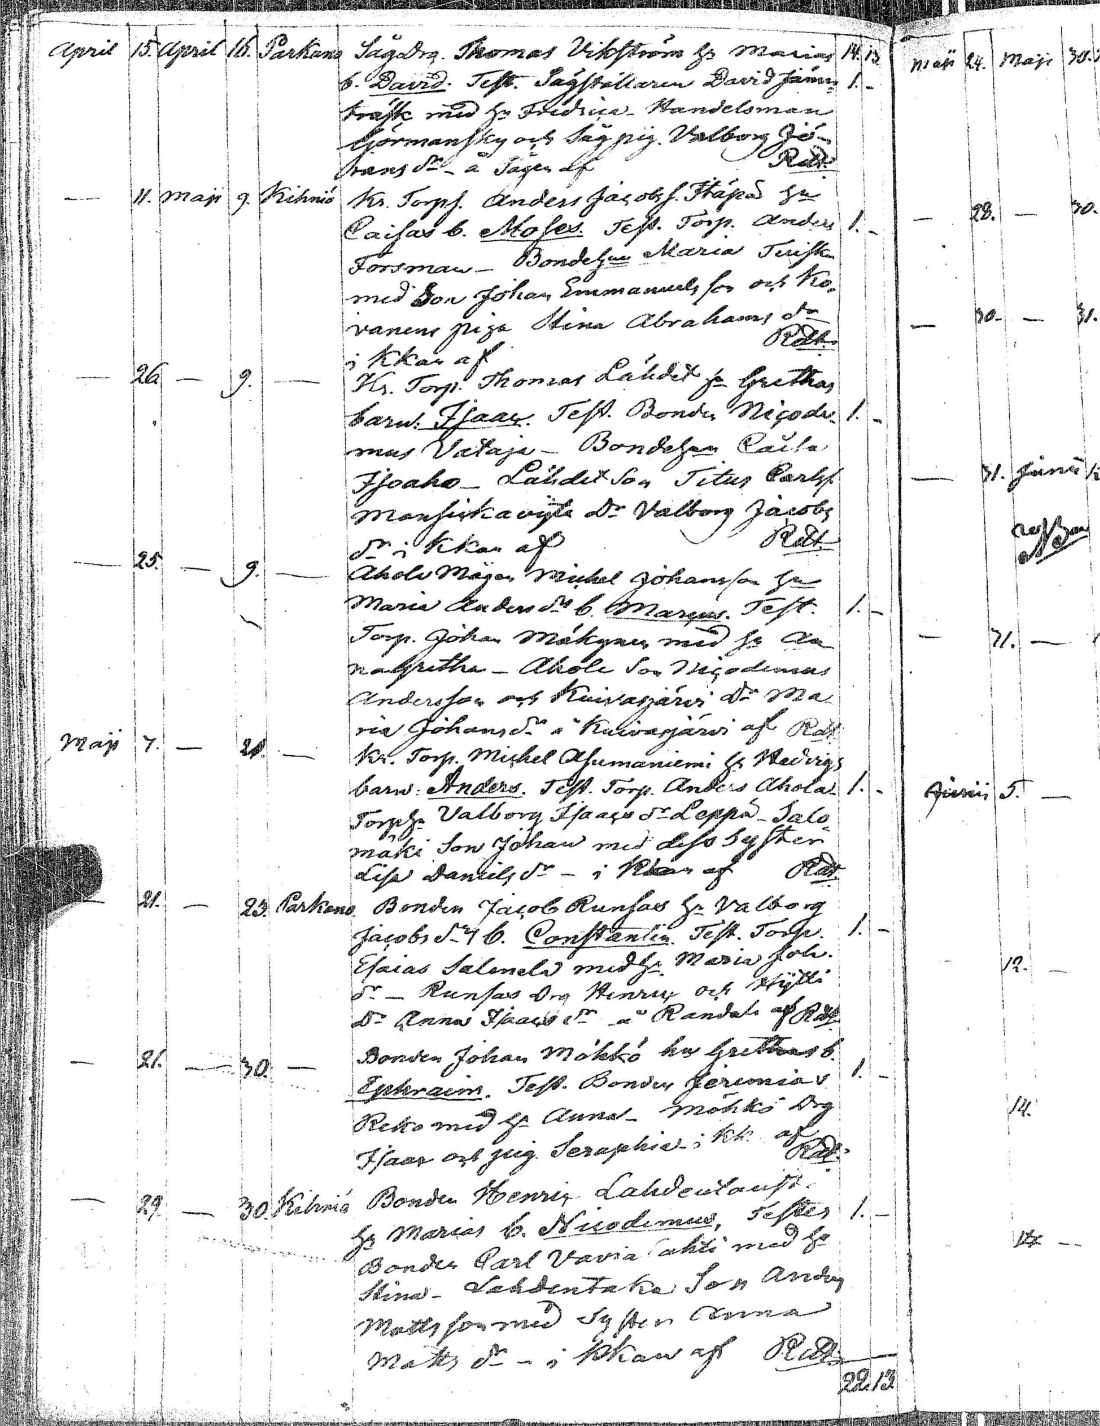 April 15. April 16. Parkano SägDrg. Thomas Vikström hu Marias 14. 13
b. David. Test. Sågställaren David
träsk med hu Fredrica - Handelsman
Görmansky och Säg pig. Valborg Jö-
rans dr - å Sågen af Rdt.
— 11. Maji 9. Kihniö Kr. Torp. Anders Jacobs s. hu
Caisas b. Moses. Test. Torp. Anders 1. -
Forsman - Bondehu Maria
med Son Johan Emmanuels son och Ko-
vanens piga Stina Abrahams dr
i Kkan af Rdt.
— 26 — 9. — Kr. Torp. Thomas Lähdet hu Grethas
barn: Isaac. Test. Bonden Nicode- 1. -
mus Vataja - Bondehu Caisa
Isoaho - Lähdet Son Titus Carls s.
Mansickaviita dr Valborg Jacobs
dr i Kkan af Rdt.
— 25. — 9. — Ahola Mågen Michel Johansson hu
Maria Anders drs b. Marcus. Test. 1. -
Torp. Johan Mäkynen med hu An
na Gretha - Ahola Son Nicodemus
Andersson och Kuivasjärvi dr Ma
ria Johans dr å Kuivasjärvi af Rdt
Maji 7. — 21. — Kr. Torp. Michel Asumaniemi hu Hedvigs
barn: Anders. Test. Torp. Anders Ahola 1. -
Torp hu Valborg Isaacs dr Leppä - Salo
mäki Son Johan med dess Syster
Lisa Daniels dr - i Kkan af Rdt
— 21. — 23. Parkano Bonden Jacob Runsas hu Valborg
Jacobs drs b. Constantin. Test. Torp. 1. -
Esaias Salmela med hu Maria Joh.
dr - Runsas Drg Henric och
dr Anna Isaacs dr å af Rdt
— 21. — 30. — Bonden Johan Möhkö hus Grethas b.
Ephraim. Test. Bonden Jeremias 1. -
Reko med hu Anna - Möhkö Drg
Isaac och pig. Seraphia i Kk. af Rdt.
— 29. — 30 Kihniö Bonden Henric Lahdentausta
hu Marias b. Nicodemus, Testes 1. -
Bonden Carl Vavialahti med hu
Stina - Lahdentaka Son Anders
Matts son med Syster Anna
Matts dr - i Kkan af Rdt.
22. 13.
Maji 24. Maji 30.
— 28. — 30.
— 30. — 31.
— 31. Junii
— 31. —
Junii 5. —
12. —
14.
14. —